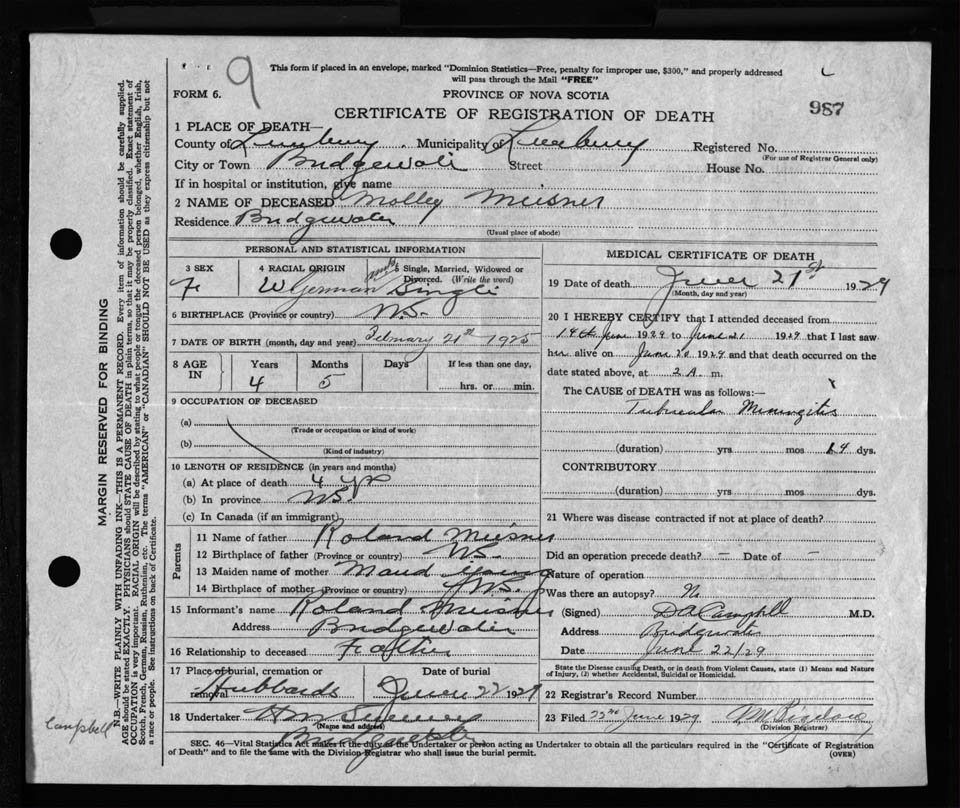 9
This form if placed in an envelope, marked "Dominion Statistics—Free, penalty for improper use, $300," and properly addressed
will pass through the Mail "FREE"
FORM 6.
PROVINCE OF NOVA SCOTIA
987
CERTIFICATE OF REGISTRATION OF DEATH
1 PLACE OF DEATH—
County of Lunenburg Municipality of Lunenburg Registered No.
(For use of Registrar General only)
City or Town Bridgewater Street House No.
If in hospital or institution, give name
2 NAME OF DECEASED Molley Meisner
Residence Bridgewater
(Usual place of abode)
PERSONAL AND STATISTICAL INFORMATION
3 SEX 4 RACIAL ORIGIN 5 Single, Married, Widowed or
Divorced. (Write the word)
Fe W German Single
6 BIRTHPLACE (Province or country) N.S.
7 DATE OF BIRTH (month, day and year) February 21st 1925
8 AGE IN Years Months Days If less than one day,
4 5 hrs. or min.
9 OCCUPATION OF DECEASED
(a)
(Trade or occupation or kind of work)
(b)
(Kind of industry)
10 LENGTH OF RESIDENCE (in years and months)
(a) At place of death 4 yrs
(b) In province N.S.
(c) In Canada (if an immigrant)
Parents
11 Name of father Roland Meisner
12 Birthplace of father (Province or country) N.S.
13 Maiden name of mother Maud Young
14 Birthplace of mother (Province or country) N.S.
15 Informant's name Roland Meisner
Address Bridgewater
16 Relationship to deceased Father
17 Place of burial, cremation or removal Date of burial
Hubbards June 22 1929
18 Undertaker
(Name and address)
Bridgewater
MEDICAL CERTIFICATE OF DEATH
19 Date of death June 21st 1929
(Month, day and year)
20 I HEREBY CERTIFY that I attended deceased from
14th June 1929 to June 21 1929 that I last saw
her alive on June 20 1929 and that death occurred on
date stated above, at 2 A. m.
The CAUSE OF DEATH was as follows:—
Tubercular Meningitis
(duration) yrs mos 14 dys.
CONTRIBUTORY
(duration) yrs. mos. dys.
21 Where was disease contracted if not at place of death?
Did an operation precede death? – Date of –
Nature of operation
Was there an autopsy? N
(Signed) D A Campbell M.D.
Address Bridgewater
Date June 22/29
State the Disease causing Death, or in death from Violent Causes, state (1) Means and Nature
of Injury, (2) whether Accidental, Suicidal or Homicidal.
22 Registrar's Record Number
23 Filed 22nd June 1929
(Division Registrar)
SEC. 46—Vital Statistics Act makes it the duty of the Undertaker or person acting as Undertaker to obtain all the particulars required in the "Certificate of Registration
of Death" and to file the same with the Division Registrar who shall issue the burial permit.
(OVER)
MARGIN RESERVED FOR BINDING
N.B.—WRITE PLAINLY WITH UNFADING INK—THIS IS A PERMANENT RECORD. Every item of information should be carefully supplied.
AGE should be stated EXACTLY. PHYSICIANS should STATE CAUSE OF DEATH in plain terms, so that it may be properly classified. Exact statement of
OCCUPATION is very important. RACIAL ORIGIN will be described by stating to what people or tongue the deceased person belonged, whether English, Irish,
Scotch, French, German, Russian, Ruthenian, etc. The terms "AMERICAN" or "CANADIAN" SHOULD NOT BE USED as they express citizenship but not
a race or people. See instructions on back of Certificate.
Campbell